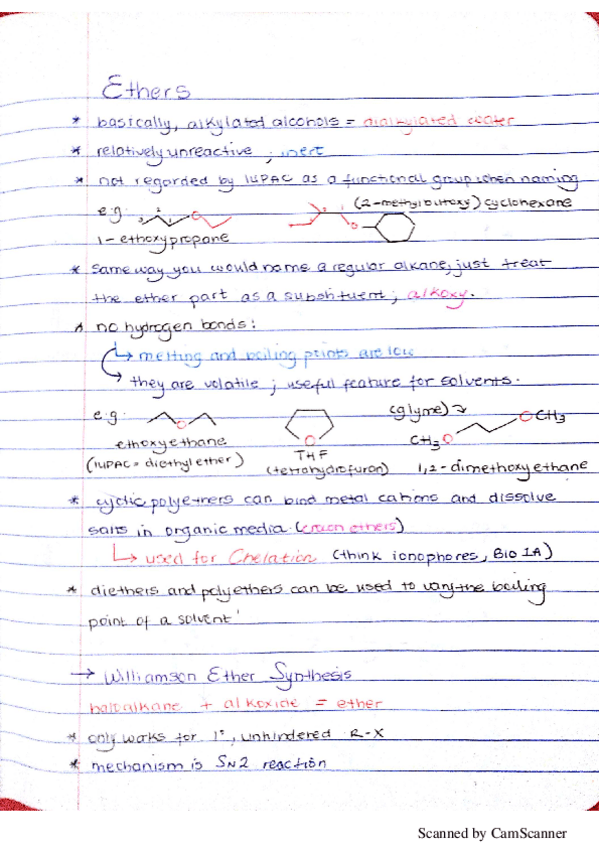 Ethers
* basically, alkylated alcohols = dialkylated water
* relatively unreactive ; inert
* not regarded by IUPAC as a functional group when naming
e.g. (2-methylbutoxy) cyclohexane
1 2 3 O
O
1-ethoxypropane
* same way you would name a regular alkane, just treat
the ether part as a substituent ; alkoxy.
* no hydrogen bonds:
↳ melting and boiling points are low
→ they are volatile ; useful feature for solvents.
e.g. (glyme) OCH3
O O CH3O
ethoxyethane THF
(IUPAC = diethyl ether) (tetrahydrofuran) 1,2-dimethoxyethane
* cyclic polyethers can bind metal cations and dissolve
salts in organic media. (crown ethers)
↳ used for Chelation (think ionophores, Bio 1A)
* diethers and polyethers can be used to vary the boiling
point of a solvent
→ Williamson Ether Synthesis
haloalkane + alkoxide = ether
* only works for 1°, unhindered R-X
* mechanism is SN2 reaction
Scanned by CamScanner